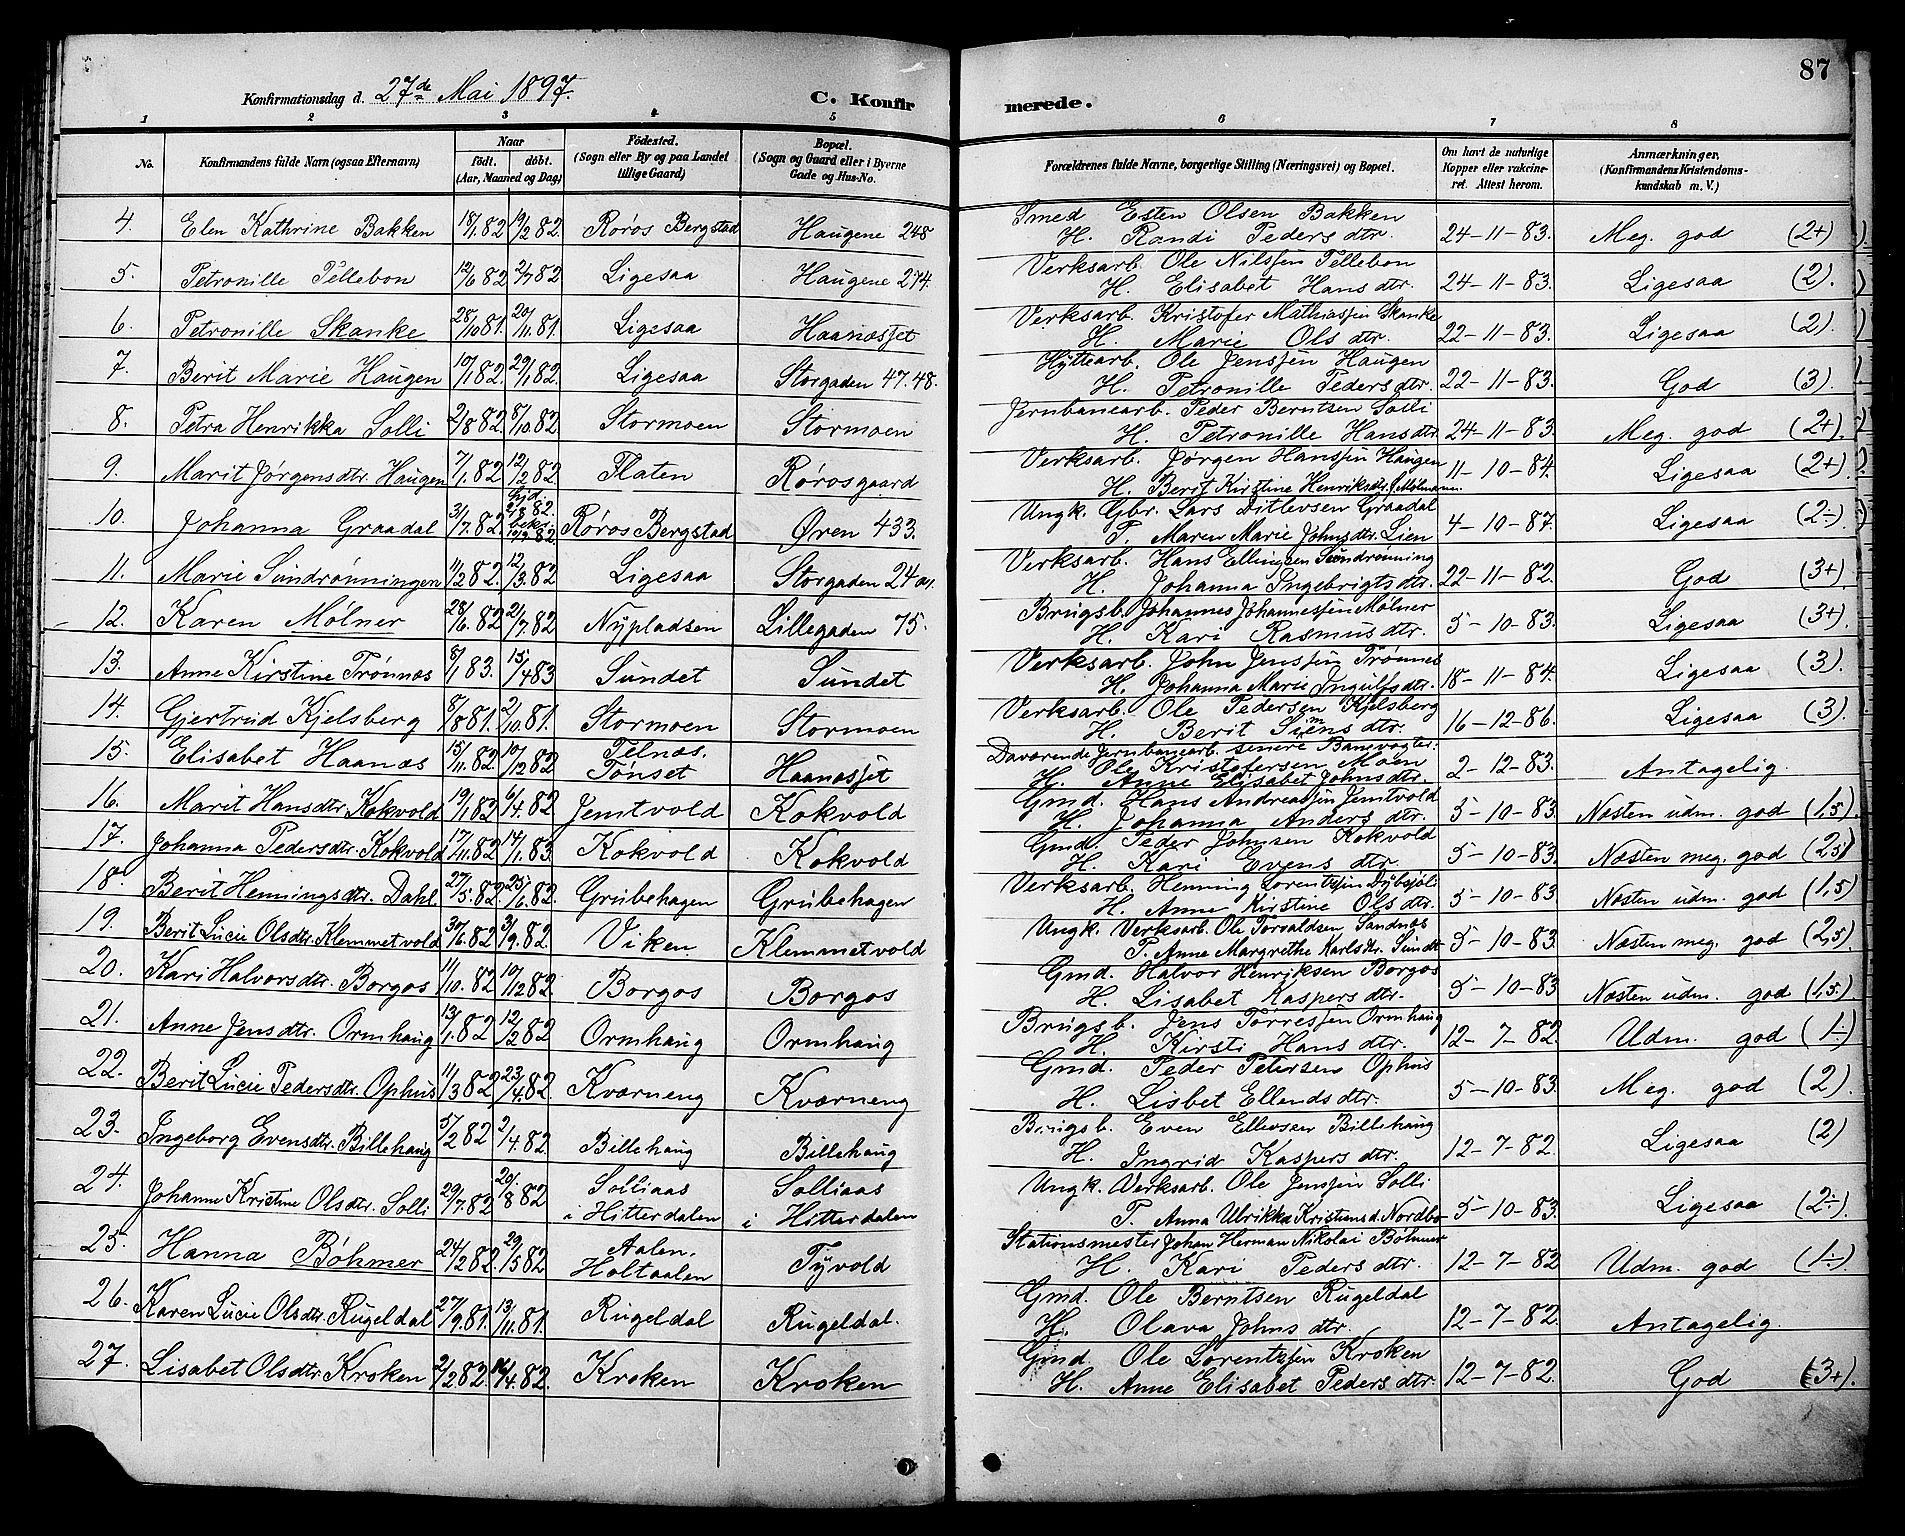 87
Konfirmationsdag d. 27de Mai 1897. C. Konfirmerede.
1 2 3 4 5 6 7 8
No. Konfirmandens fulde Navn (ogsaa Efternavn) Naar født. døbt. (Aar, Maaned og Dag) Fødested. (Sogn eller By og paa Landet tillige Gaard) Bopæl. (Sogn og Gaard eller i Byerne Gade og Hus-No. Forældrenes fulde Navne, borgerlige Stilling (Næringsvei) og Bopæl. Om havt de naturlige Kopper eller vakcineret. Attest herom. Anmærkninger. (Konfirmandens Kristendomskundskab m. V.)
4. Elen Kathrine Bakken 18/1 82 19/2 82. Røros Bergstad Haugene 248 Smed Esten Olsen Bakken
H. Randi Pedersdtr. 24-11-83. Meg. god (2+)
5. Petronille Tellebon 12/6 82 2/7 82 Ligesaa Haugene 274. Verksarb. Ole Nilssen Tellebon
H. Elisabet Hansdtr. 24-11-83. Ligesaa (2).
6. Petronille Skanke 28/10 81. 20/11 81. Ligesaa Haanæsset Verksarb. Kristofer Mathiassen Skanke
H. Marie Olsdtr. 22-11-83. Ligesaa (2)
7. Berit Marie Haugen 10/1 82. 29/1 82. Ligesaa Storgaden 47.48. Hyttearb. Ole Jenssen Haugen
H. Petronille Pedersdtr. 22-11-83. God (3)
8. Petra Henrikka Solli 2/8 82 8/10 82 Stormoen Stormoen Jernbanearb. Peder Berntsen Solli
H. Petronille Hansdtr. 24-11-83. Meg. god (2+).
9. Marit Jørgensdtr. Haugen 7/1 82 12/2 82 Flaten Rørosgaard Verksarb. Jørgen Hanssen Haugen
H. Berit Kirstine Henriksdtr. Mølmann. 11-10-84. Ligesaa (2+)
10. Johanna Graadal 31/7 82. Røros Bergstad Øren 433. Ungk. Gbr. Lars Ditlevsen Graadal
P. Maren Marie Johnsdtr. Lien 4-10-87. Ligesaa (2-)
11. Marie Sundrønningen 11/2 82. 12/3 82 Ligesaa Storgaden 24 Verksarb. Hans Ellingsen Sundrønning
H. Johanna Ingebrigtsdtr. 22-11-82. God (3+)
12. Karen Mølner 28/6 82 2/7 82 Nypladsen Lillegaden 75. Brugsb. Johannes Johannessen Mølner
H. Kari Rasmusdtr. 5-10-83. Ligesaa (3+)
13. Anne Kirstine Trønnæs 8/1 83. 15/4 83 Sundet Sundet Verksarb. John Jenssen Trønnes
H. Johanna Marie Ingulfsdtr. 18-11-84. Ligesaa (3).
14. Gjertrud Kjelsberg 8/8 81. 2/10 81. Stormoen Stormoen Verksarb. Ole Pedersen Kjelsberg
H. Berit Simensdtr. 16-12-86. Ligesaa (3)
15. Elisabet Haanæs 15/11 82. 10/12 82 Telnæs. Tønset Haanæsset Daværende Jernbanearb. senere Banevogter.
Ole Kristofersen Moen
H. Anne Elisabet Johnsdtr. 2-12-83. Antagelig.
16. Marit Hansdtr. Kokvold 19/1 82 6/4 82 Jemtvold Kokvold Gmd. Hans Andreassen Jemtvold
H. Johanna Andersdtr. 5-10-83. Næsten udm. god (1,5).
17. Johanna Pedersdtr. Kokvold 17/11 82 14/1 83 Kokvold Kokvold Gmd. Peder Johnsen Kokvold
H. Kari Evensdtr. 5-10-83. Næsten meg. god (2,5)
18. Berit Henningsdtr. Dahl 27/5 82. 25/6 82. Grubehagen Grubehagen Verksarb. Henning Lorentssen Dybsjöli
H. Anne Kirstine Olsdtr. 5-10-83. Næsten udm. god (1,5)
19. Berit Lucie Olsdtr. Klemmetvold 30/6 82 3/9 82. Viken Klemmetvold Ungk. Verksarb. Ole Torvaldsen Sandnæs
P. Anne Margrethe Karlsdtr. Sundt 5-10-83. Næsten meg. god (2,5)
20. Kari Halvorsdtr. Borgos 11/10 82 10/12 82. Borgos Borgos Gmd. Halvor Henriksen Borgos
H. Lisabet Kaspersdtr. 5-10-83 Næsten udm. god (1,5.)
21. Anne Jensdtr. Ormhaug 13/1 82 12/2 82 Ormhaug Ormhaug Brugsb. Jens Torressen Ormhaug
H. Kirsti Hansdtr. 12-7-82. Udm. god (1-)
22. Berit Lucie Pedersdtr. Ophus 11/3 82 23/4 82. Kværneng Kværneng Gmd. Peder Petersen Ophus
H. Lisbet Ellendsdtr. 5-10-83. Meg. god (2)
23. Ingeborg Evensdtr. Billehaug 5/2 82 2/4 82. Billehaug Billehaug Brugsb. Even Ellevsen Billehaug
H. Ingrid Kaspersdtr. 12-7-82. Ligesaa (2)
24. Johanne Kristine Olsdtr. Solli 29/7 82 20/8 82 Solliaas i Hitterdalen Solliaas i Hitterdalen Ungk. Verksarb. Ole Jenssen Solli
P. Anna Ulrikka Kristiansd. Nordbo 5-10-83. Ligesaa (2-)
25. Hanna Bøhmer 24/2 82. 29/5 82 Aalen. Holtaalen Tyvold Stationsmester Johan Herman Nikolai Bøhmer
H. Kari Pedersdtr. 12-7-82 Udm. god (1-)
26. Karen Lucie Olsdtr. Rugeldal 27/9 81. 13/11 81. Rugeldal Rugeldal. Gmd. Ole Berntsen Rugeldal
H. Olava Johnsdtr. 12-7-82. Antagelig.
27. Lisabet Olsdtr. Kroken 2/2 82. 16/4 82. Kroken Kroken Gmd. Ole Lorentssen Kroken
H. Anne Elisabet Pedersdtr. 12-7-82. God (3+).